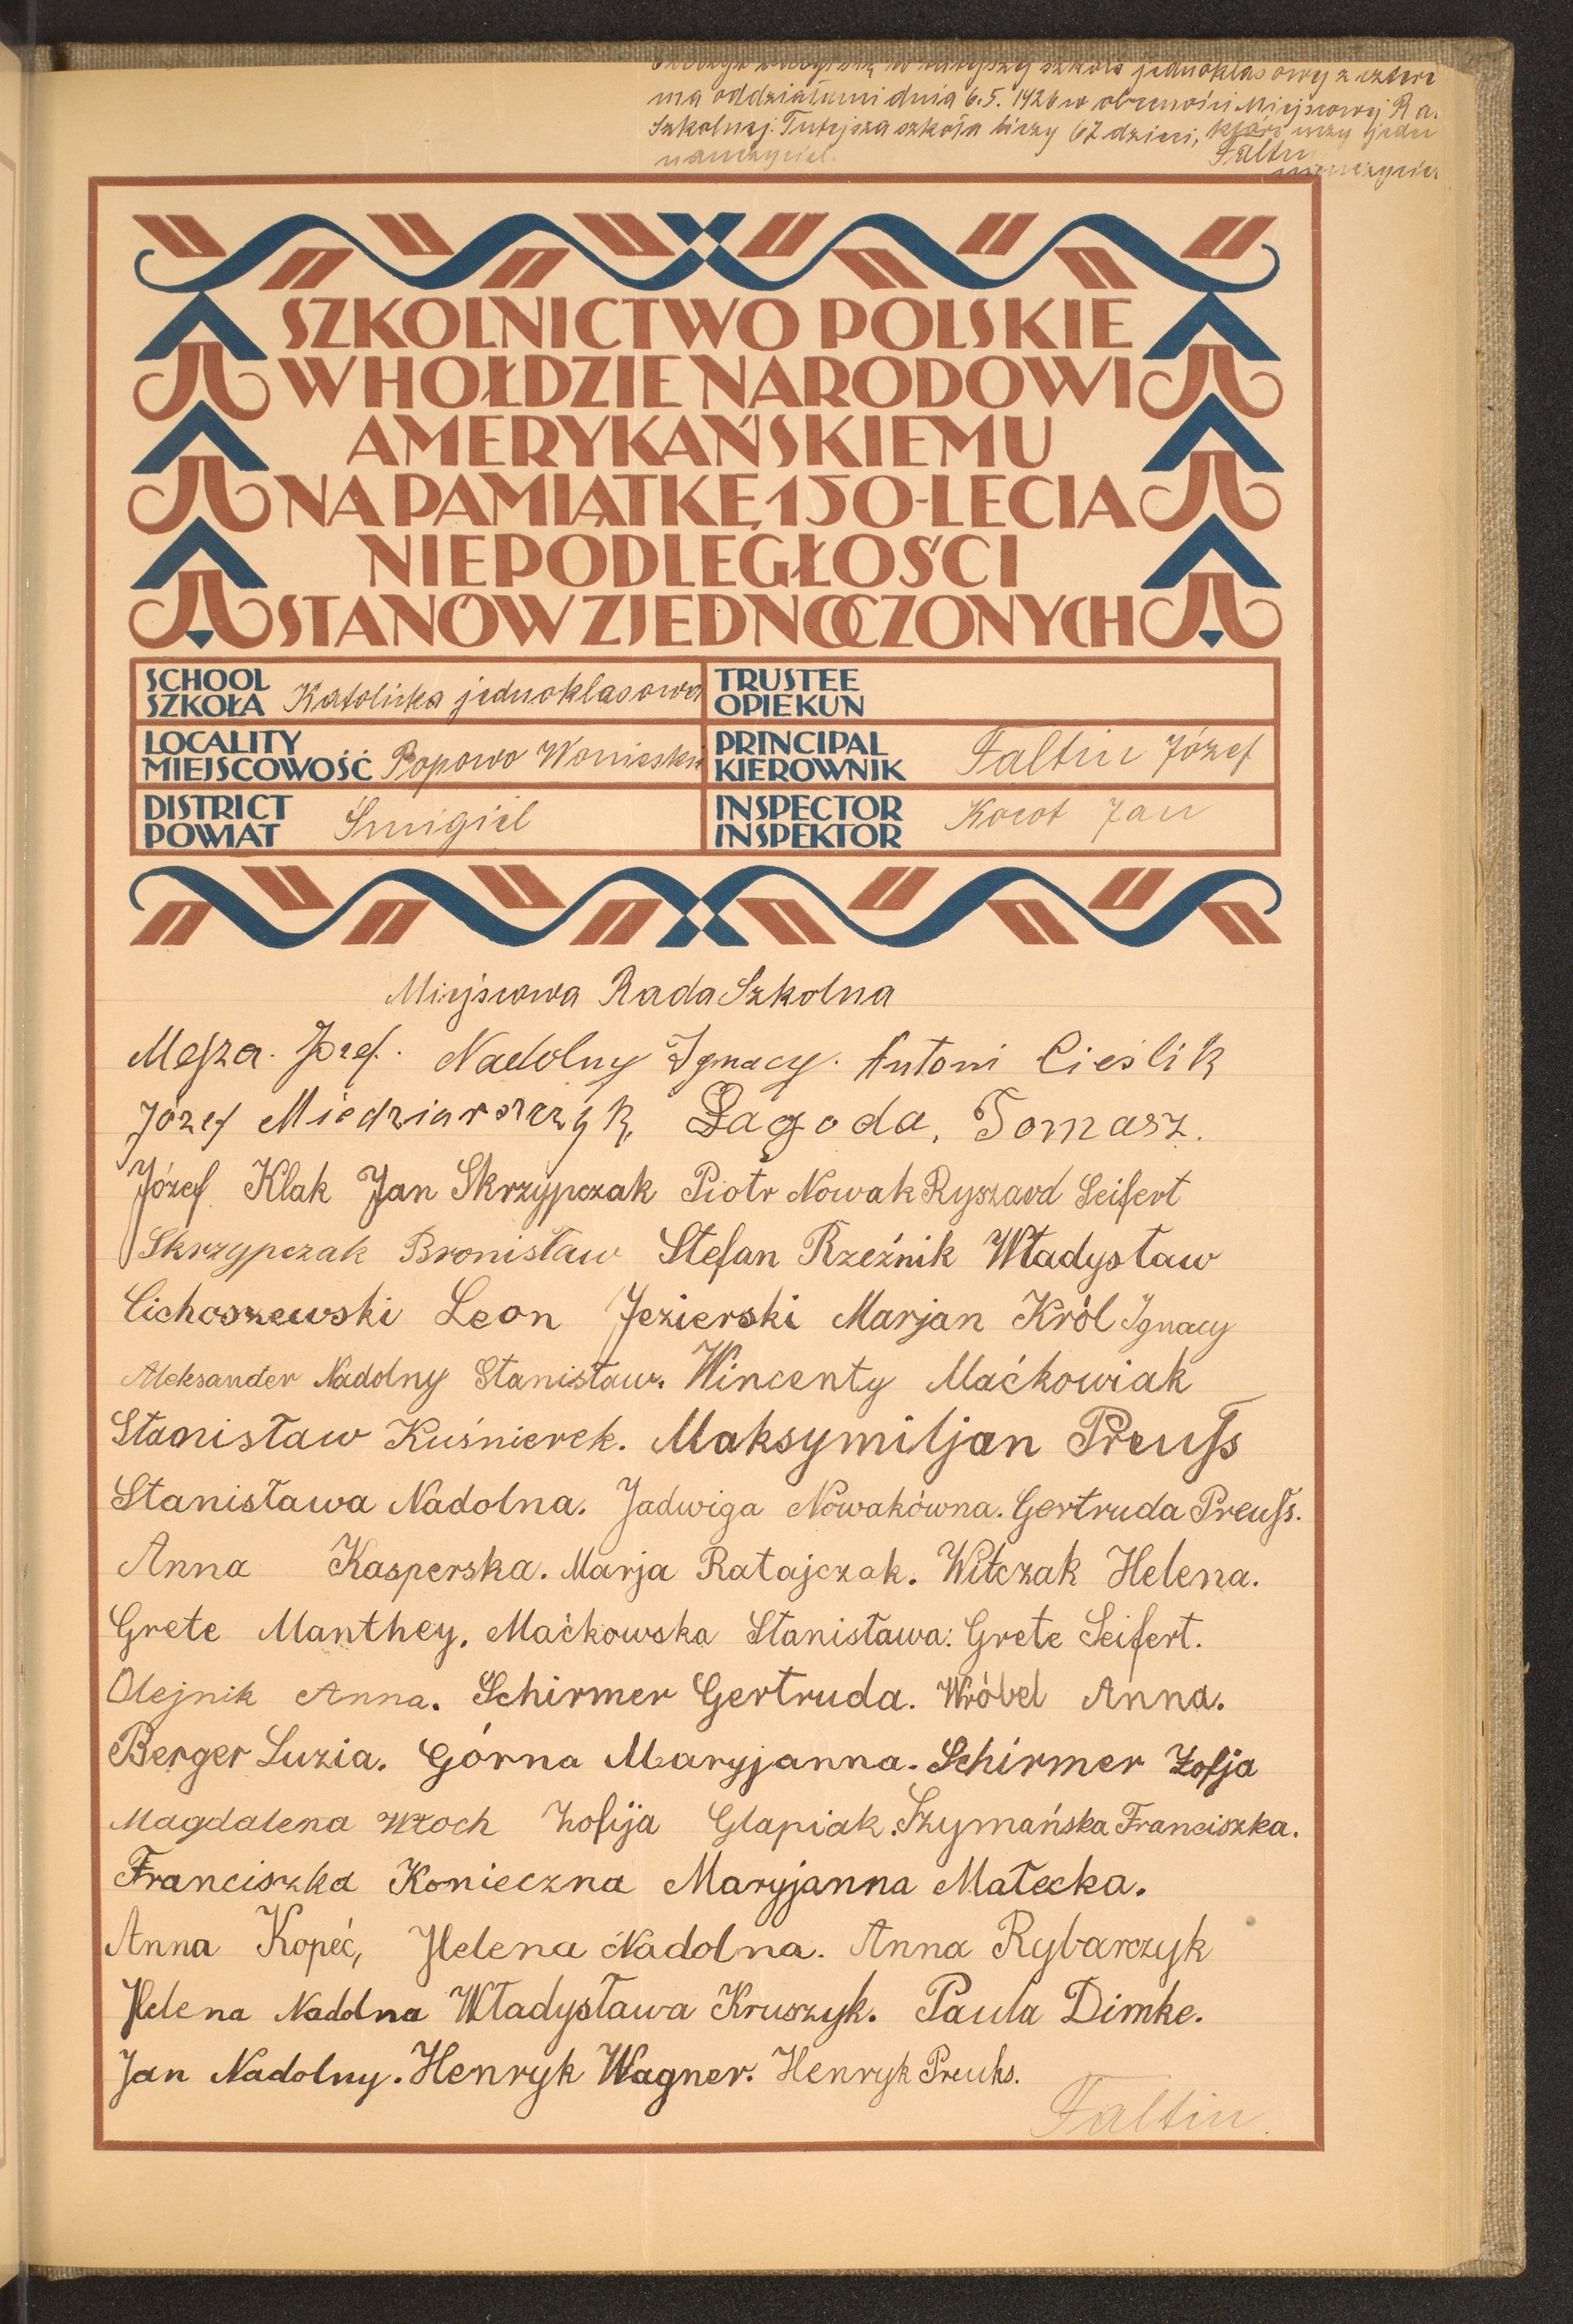 szkole jednoklasowej z cztere
ma oddziałami dnia 6.5. 1926 w obecności Miejscowej Ra.
Szkolnej. Tutejsza szkoła liczy 67 dzieci, które uczy jeden
nauczyciel.
Faltin
nauczyciel
SZKOLNICTWO POLSKIE
W HOŁDZIE NARODOWI
AMERYKAŃSKIEMU
NA PAMIĄTKĘ 150-LECIA
NIEPODLEGŁOŚCI
STANÓW ZJEDNOCZONYCH
SCHOOL
SZKOŁA Katolicka jednoklasowa
TRUSTEE
OPIEKUN
LOCALITY
MIEJSCOWOŚĆ Popowo Wonieskie
PRINCIPAL
KIEROWNIK Faltin Józef
DISTRICT
POWIAT Śmigiel
INSPECTOR
INSPEKTOR Kocot Jan
Miejscowa Rada Szkolna
Mejza. Józef. Nadolny Ignacy. Antoni Cieślik
Józef Miedziarczyk, Pagoda, Tomasz.
Józef Klak Jan Skrzypczak Piotr Nowak Ryszard Seifert
Skrzypczak Bronisław Stefan Rzeźnik Władysław
Cichoszewski Leon Jezierski Marjan Król Ignacy
Aleksander Nadolny Stanisław. Wincenty Maćkowiak
Stanisław Kuśnierek. Maksymiljan Preuſs
Stanisława Nadolna. Jadwiga Nowakówna. Gertruda Preuſs.
Anna Kasperska. Marja Ratajczak. Witczak Helena.
Grete Manthey. Maćkowska Stanisława. Grete Seifert.
Olejnik Anna. Schirmer Gertruda. Wróbel Anna.
Berger Luzia. Górna Maryjanna. Schirmer Zofja
Magdalena Włoch Zofija Glapiak. Szymańska Franciszka.
Franciszka Konieczna Maryjanna Małecka.
Anna Kopeć, Helena Nadolna. Anna Rybarczyk
Helena Nadolna Władysława Kruszyk. Paula Dimke.
Jan Nadolny. Henryk Wagner. Henryk Preuhs.
Faltin